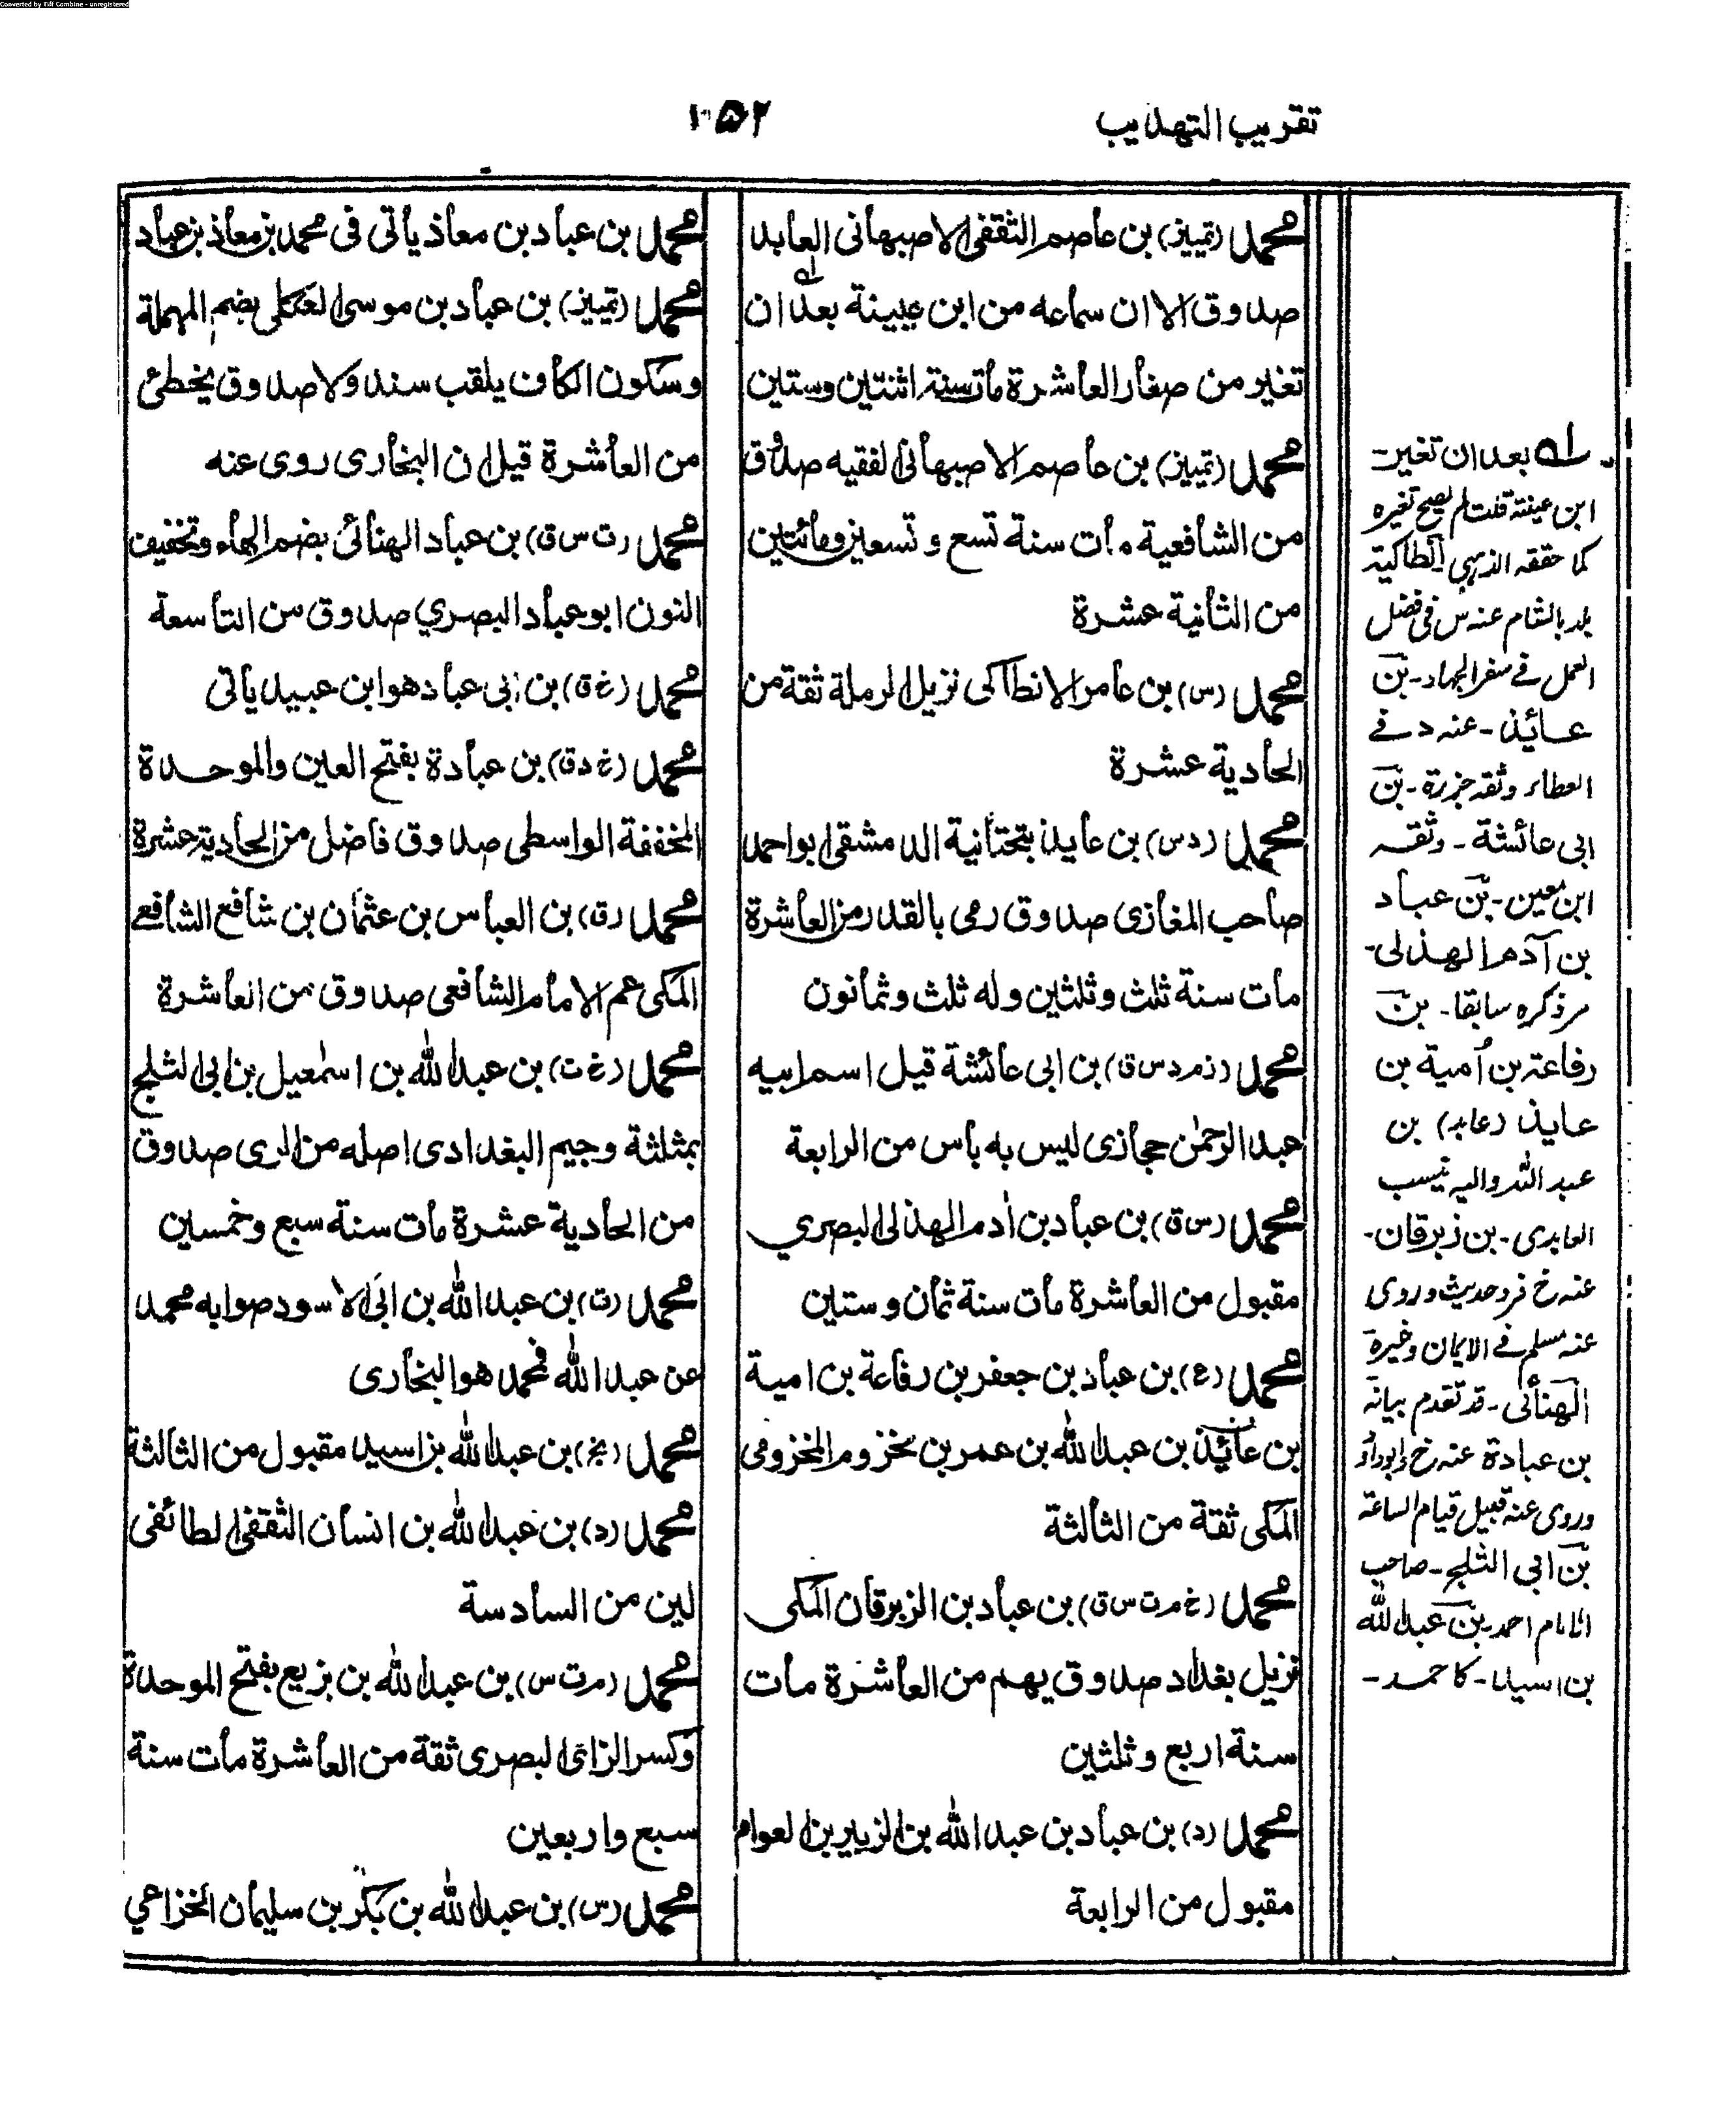 Converted by Tiff Combine - unregistered
تقريب التهذيب
محمد (تمييز) بن عاصم الثقفي الاصبهاني العابد
صدوق الا ان سماعه من ابن عيينة بعد ان
تغير من صغار العاشرة مات سنة اثنتين وستين
محمد (تمييز) بن عاصم الاصبهاني الفقيه صدوق
من الشافعية مات سنة تسع و تسعين ومائتين
من الثانية عشرة
محمد (س) بن عامر الانطاكي نزيل الرملة ثقة من
الحادية عشرة
محمد (د س) بن عايذ بتحتانية الدمشقي ابو احمد
صاحب المغازى صدوق رمى بالقدر من العاشرة
مات سنة ثلث وثلثين وله ثلث وثمانون
محمد (ز م د س ق) بن ابى عائشة قيل اسم ابيه
عبد الرحمٰن حجازى ليس به باس من الرابعة
محمد (س ق) بن عباد بن اٰدم الهذلى البصري
مقبول من العاشرة مات سنة ثمان وستين
محمد (ع) بن عباد بن جعفر بن رفاعة بن امية
بن عائذ بن عبد الله بن عمر بن مخزوم المخزومى
المكى ثقة من الثالثة
محمد (خ م ت س ق) بن عباد بن الزبرقان المكى
نزيل بغداد صدوق يهم من العاشرة مات
سنة اربع وثلثين
محمد (د) بن عباد بن عبد الله بن الزبير بن العوام
مقبول من الرابعة
محمد بن عباد بن معاذ ياتى فى محمد بن معاذ بن عباد
محمد (تمييز) بن عباد بن موسى العكلى بضم المهملة
وسكون الكاف يلقب سندولا صدوق يخطئ
من العاشرة قيل ان البخارى روى عنه
محمد (ت س ق) بن عباد الهنائى بضم الهاء وتخفيف
النون ابو عباد البصري صدوق من التاسعة
محمد (خ ق) بن ابى عباد هو ابن عبيد ياتى
محمد (خ د ق) بن عبادة بفتح العين والموحدة
المخففة الواسطى صدوق فاضل من الحادية عشرة
محمد (ق) بن العباس بن عثمان بن شافع الشافعي
المكى عم الامام الشافعى صدوق من العاشرة
محمد (خ ت) بن عبد الله بن اسمٰعيل بن ابى الثلج
بمثلثة وجيم البغدادى اصله من الرى صدوق
من الحادية عشرة مات سنة سبع وخمسين
محمد (ت) بن عبد الله بن ابى الاسود صوابه محمد
عن عبد الله فمحمد هو البخارى
محمد (بخ) بن عبد الله بن اسيد مقبول من الثالثة
محمد (د) بن عبد الله بن انسان الثقفى الطائفى
لين من السادسة
محمد (م ت س) بن عبد الله بن بزيع بفتح الموحدة
وكسر الزاى البصرى ثقة من العاشرة مات سنة
سبع واربعين
محمد (س) بن عبد الله بن بكر بن سليمان الخزاعي
له بعد ان تغير-
ابن عيينة قلت لم يصح تغيره
كما حققه الذهبي انطاكية
بلد بالشام عنه س فى فضل
العمل فى سفر الجهاد - بن
عائذ - عنه د فى
العطاء وثقه جزرة - بن
ابى عائشة - وثقه
ابن معين - بن عباد
بن آدم الهذلى -
مر ذكره سابقا - بن
رفاعة بن أمية بن
عايذ (عابد) بن
عبد الله واليه نيسب
العابدى - بن زبرقان -
عنه خ فرد حديث وروى
عنه مسلم فى الايمان وغيره
الهنائى - قد تقدم بيانه
بن عبادة عنه خ وابوداؤد
وروى عنه قبيل قيام الساعة
بن ابى الثلج - صاحب
الامام احمد - بن عبد الله
بن اسيد - كاحمد -